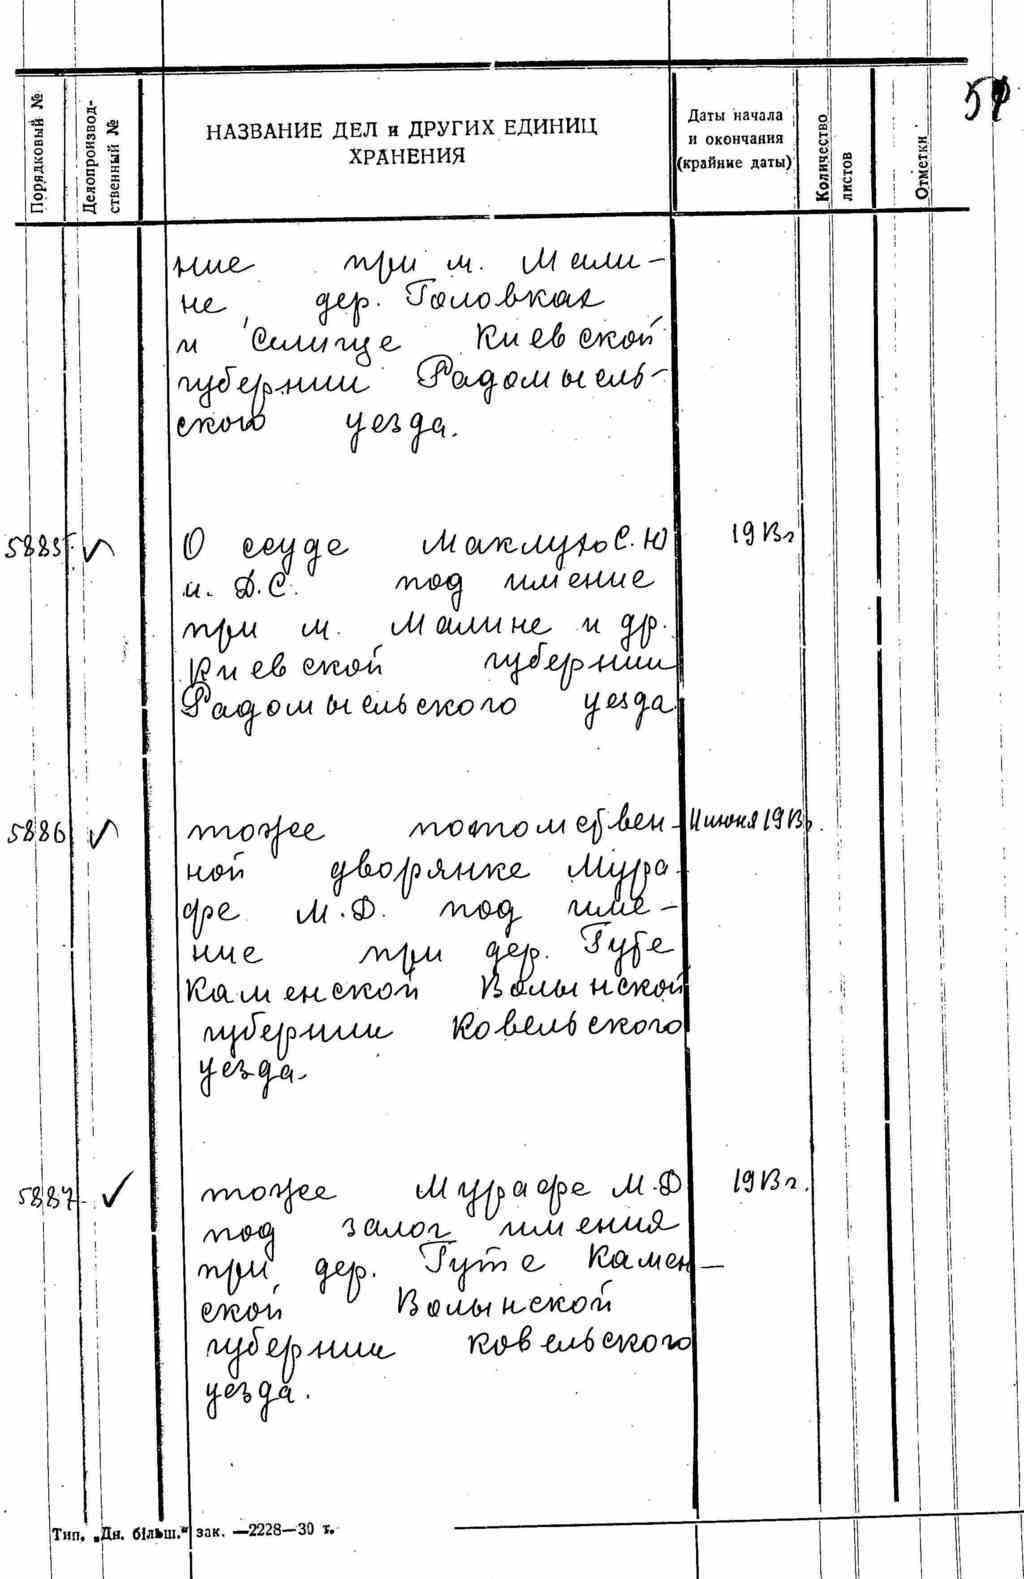 Порядковый №
Делопроизвод-
ственный №
НАЗВАНИЕ ДЕЛ и ДРУГИХ ЕДИНИЦ
ХРАНЕНИЯ
Даты начала
и окончания
(крайние даты)
Количество
листов
Отметки
ние при м. Мали-
не, дер. Головках
и Селище Киевской
губернии Радомысль-
ского уезда.
5885. О ссуде Маклухо С.Ю 1913г
и. Д.С. под имение
при м. Малине и др.
Киевской губернии
Радомысльского уезда
5886 тоже потомствен- 11 июня 1913г.
ной дворянке Мура-
фе М.Д. под име-
ние при дер. Гуте
Каменской Волынской
губернии Ковельского
уезда.
5887 тоже Мурафе М.Д 1913г.
под залог имения
при дер. Гуте Камен-
ской Волынской
губернии Ковельского
уезда.
Тип. „Дн. більш." зак. —2228—30 т.